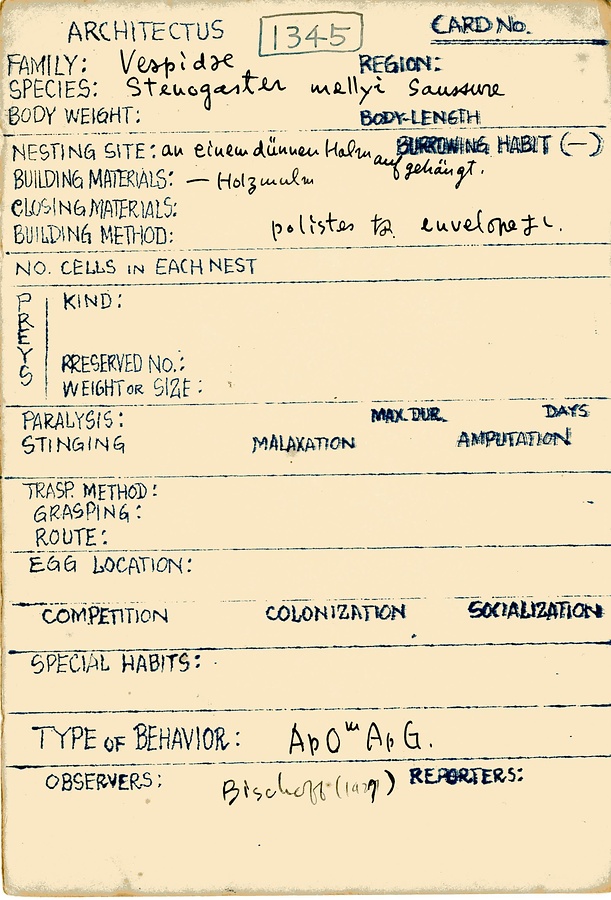 ARCHITECTUS 1345 CARD No.
FAMILY: Vespidae REGION:
SPECIES: Stenogaster mellyi Saussure
BODY WEIGHT: BODY-LENGTH
NESTING SITE: an einem dünnen Halm aufgehängt. BURROWING HABIT (—)
BUILDING MATERIALS: — Holzmulm
CLOSING MATERIALS:
BUILDING METHOD: polistes envelope
NO. CELLS IN EACH NEST
PREYS
KIND:
PRESERVED NO.:
WEIGHT OR SIZE:
PARALYSIS: MAX. DUR. DAYS
STINGING MALAXATION AMPUTATION
TRASP. METHOD:
GRASPING:
ROUTE:
EGG LOCATION:
COMPETITION COLONIZATION SOCIALIZATION
SPECIAL HABITS:
TYPE OF BEHAVIOR: ApO^m ApG.
OBSERVERS: Bischoff (1927) REPORTERS: